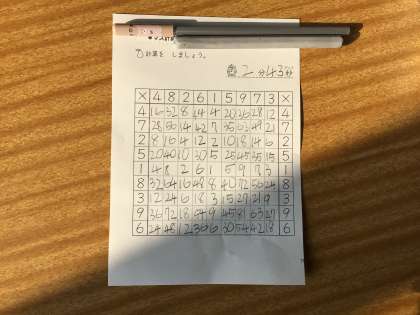 計算を しましょう。
2分43秒
× 4 8 2 6 1 5 9 7 3 ×
4 16 32 8 24 4 20 36 28 12 4
7 28 56 14 42 7 35 63 49 21 7
2 8 16 4 12 2 10 18 14 6 2
5 20 40 10 30 5 25 45 35 15 5
1 4 8 2 6 1 5 9 7 3 1
8 32 64 16 48 8 40 72 56 24 8
3 12 24 6 18 3 15 27 21 9 3
9 36 72 18 54 9 45 81 63 27 9
6 24 48 12 36 6 30 54 42 18 6